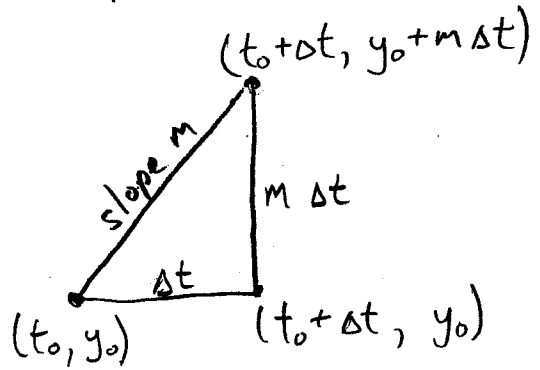 (t₀+Δt, y₀+mΔt)
slope m
m Δt
Δt
(t₀, y₀)
(t₀+Δt, y₀)